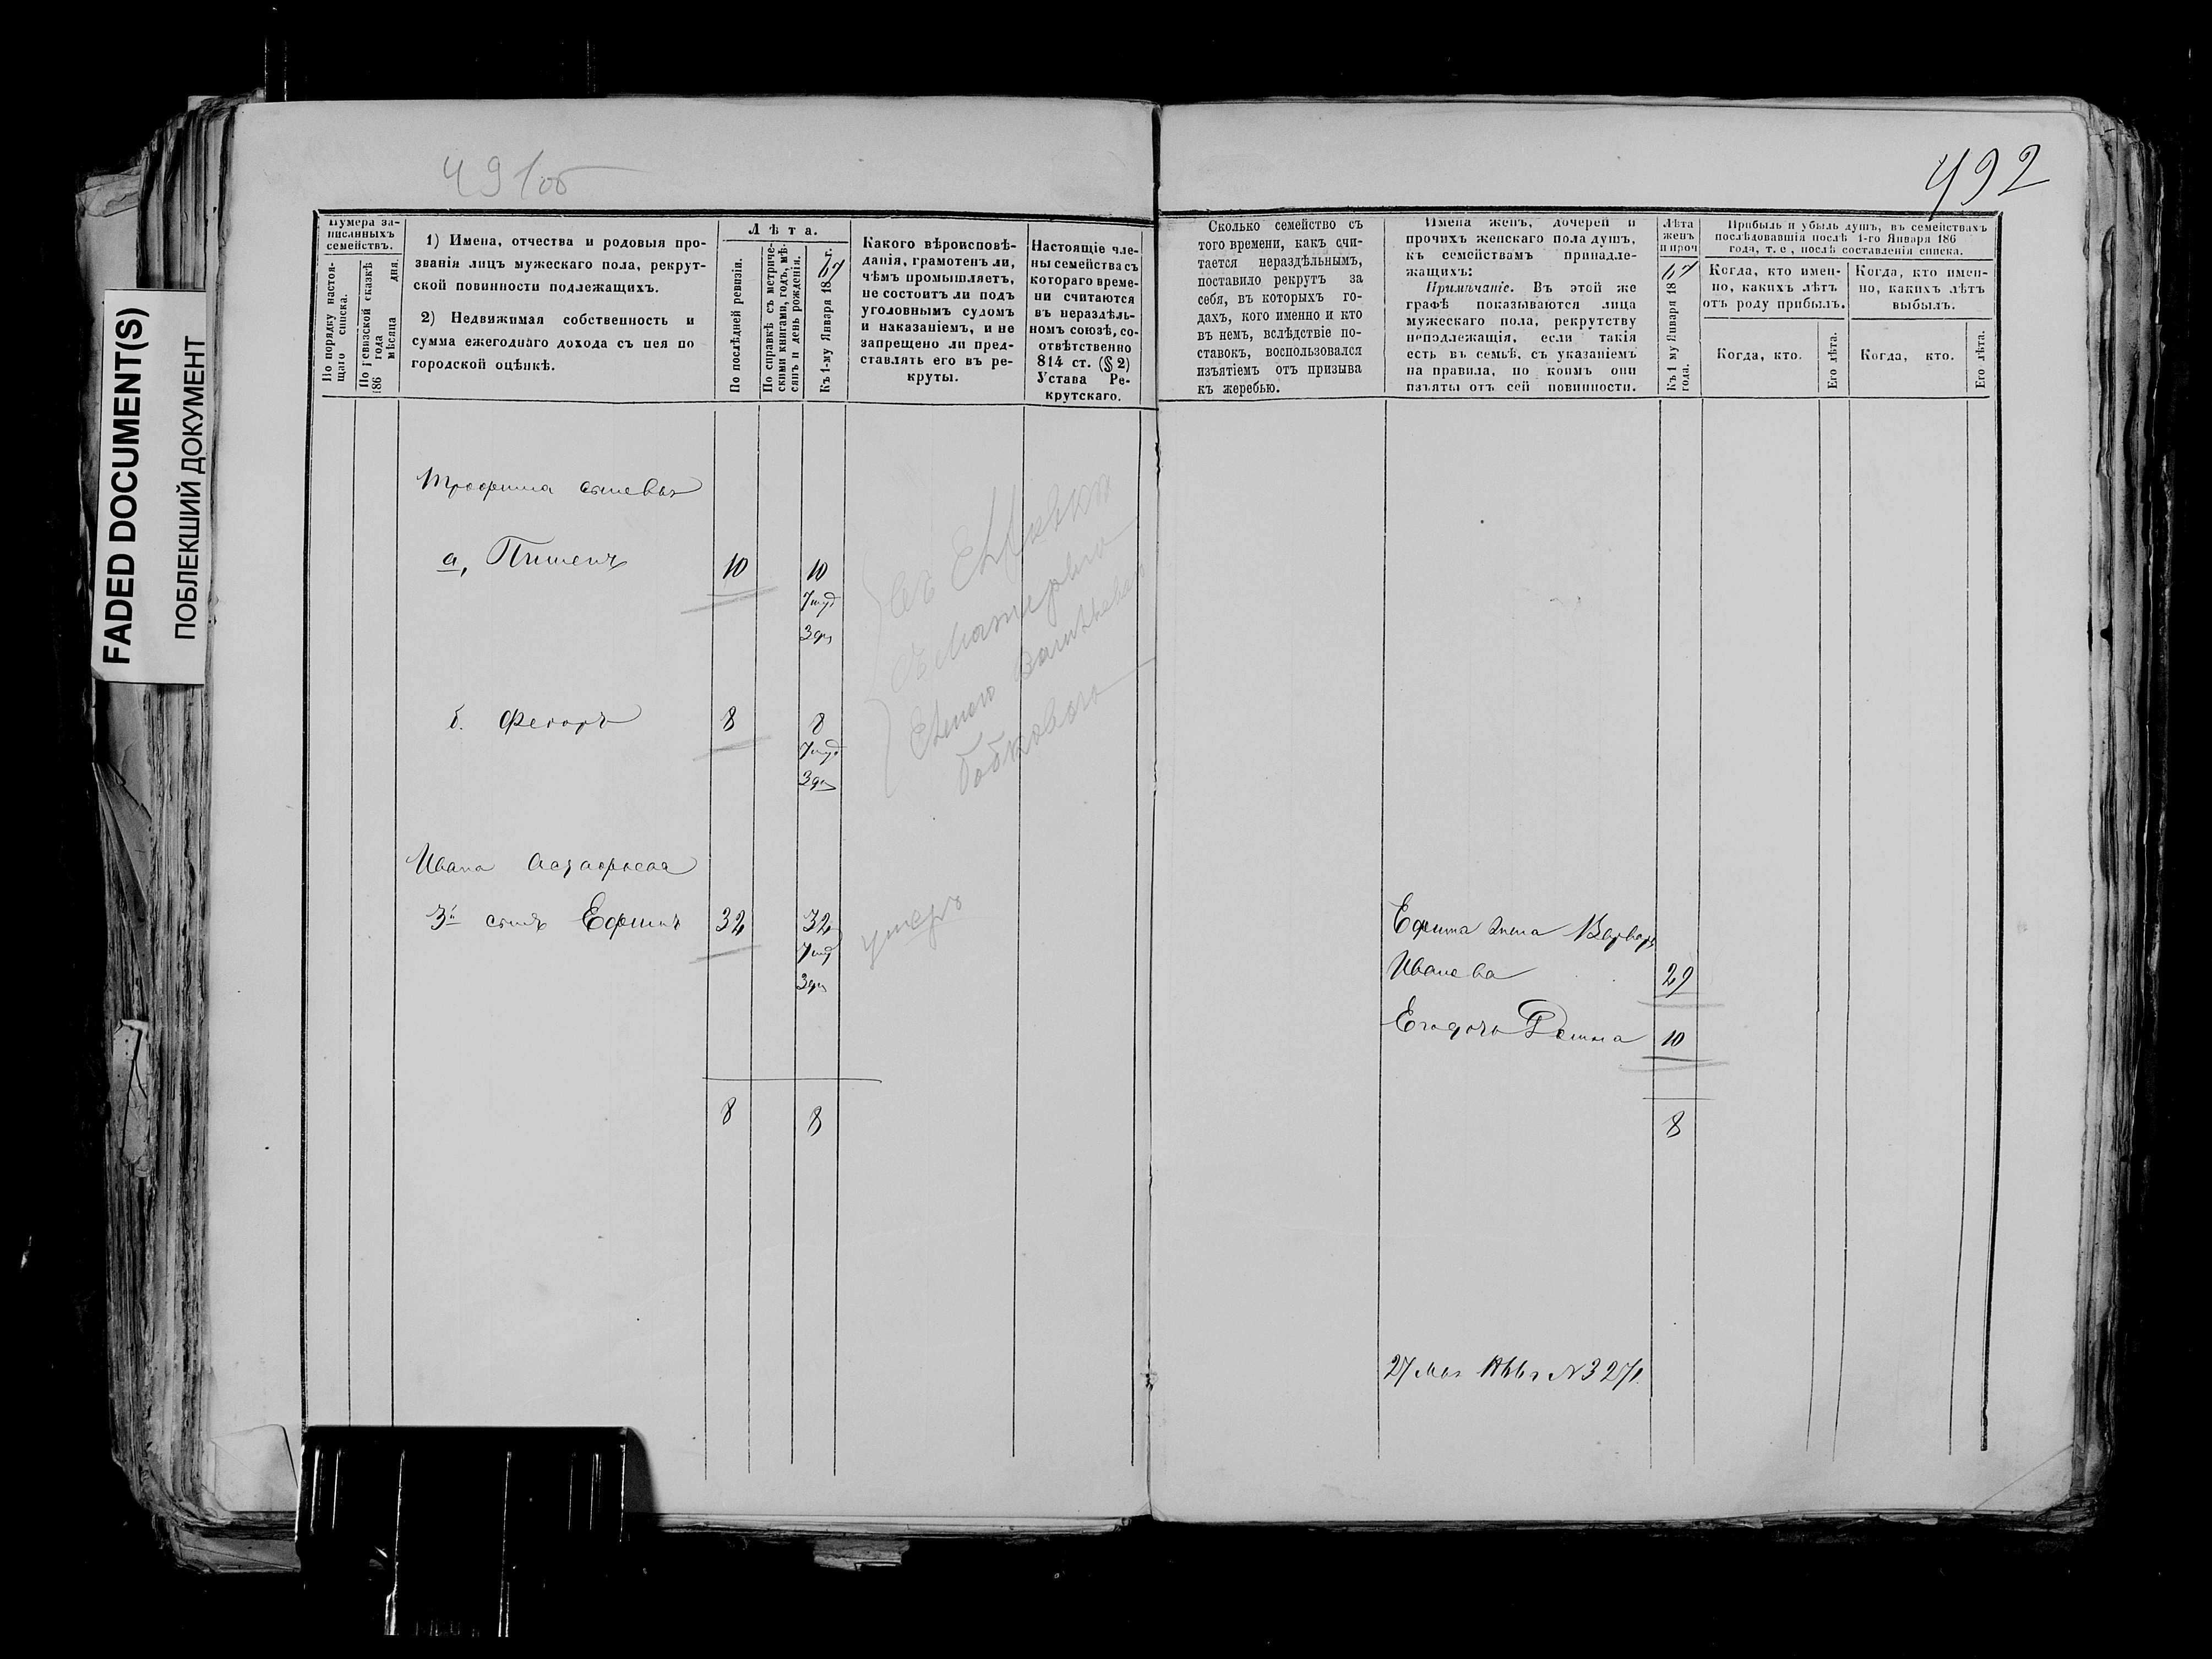 FADED DOCUMENT(S)
ПОБЛЕКШИЙ ДОКУМЕНТ
491об
492
Нумера за-
писанныхъ
семействъ.
По порядку настоя-
щаго списка.
По ревизской сказкѣ
186 года
мѣсяца дня.
1) Имена, отчества и родовыя про-
званія лицъ мужескаго пола, рекрут-
ской повинности подлежащихъ.
2) Недвижимая собственность и
сумма ежегоднаго дохода съ нея по
городской оцѣнкѣ.
Лѣта.
По послѣдней ревизіи.
По справкѣ съ метриче-
скими книгами, годъ, мѣ-
сяцъ и день рожденія.
Къ 1-му Января 1867 г.
Какого вѣроисповѣ-
данія, грамотенъ ли,
чѣмъ промышляетъ,
не состоитъ ли подъ
уголовнымъ судомъ
и наказаніемъ, и не
запрещено ли пред-
ставлять его въ ре-
круты.
Настоящіе чле-
ны семейства съ
котораго време-
ни считаются
въ нераздѣль-
номъ союзѣ, со-
отвѣтственно
814 ст. (§ 2)
Устава Ре-
крутскаго.
Сколько семейство съ
того времени, какъ счи-
тается нераздѣльнымъ,
поставило рекрутъ за
себя, въ которыхъ го-
дахъ, кого именно и кто
въ немъ, вслѣдствіе по-
ставокъ, воспользовался
изъятіемъ отъ призыва
къ жеребью.
Имена женъ, дочерей и
прочихъ женскаго пола душъ,
къ семействамъ принадле-
жащихъ:
Примѣчаніе. Въ этой же
графѣ показываются лица
мужескаго пола, рекрутству
неподлежащія, если такія
есть въ семьѣ, съ указаніемъ
на правила, по коимъ они
изъяты отъ сей повинности.
Лѣта
женъ
и проч.
Къ 1 му Января 1867
года.
Прибыль и убыль душъ, въ семействахъ
послѣдовавшія послѣ 1-го Января 186
года, т. е., послѣ составленія списка.
Когда, кто имен-
но, какихъ лѣтъ
отъ роду прибылъ.
Когда, кто имен-
но, какихъ лѣтъ
выбылъ.
Когда, кто.
Его лѣта.
Когда, кто.
Его лѣта.
Трофима сыновья
а, Пименъ 10 10
8 8
Ивана
3й сынъ Ефимъ 32 32
умеръ
Ефима жена Варвара
Иванова 29
Его дочь 10
8 8
8
27 № 3271.